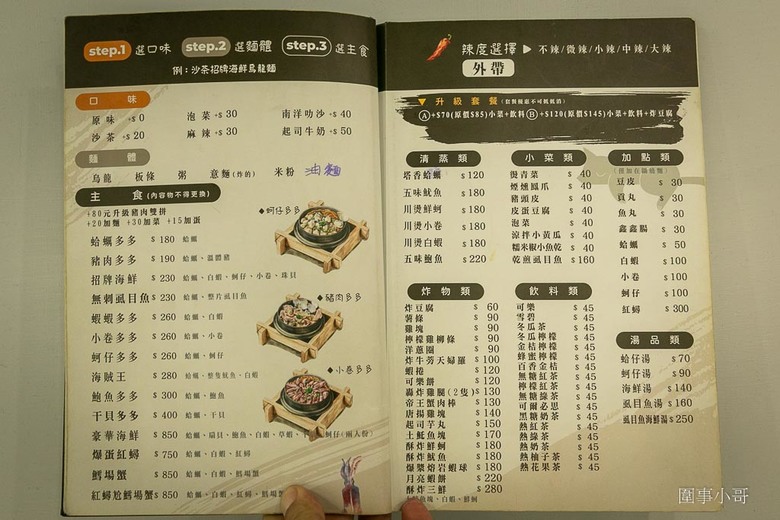 step.1 選口味 step.2 選麵體 step.3 選主食
例：沙茶招牌海鮮烏龍麵
口 味
原味 +$ 0 泡菜 +$ 30 南洋叻沙 +$ 40
沙茶 +$ 20 麻辣 +$ 30 起司牛奶 +$ 50
麵 體
烏龍 板條 粥 意麵(炸的) 米粉 油麵
主 食(內容物不得更換)
+80元升級豬肉雙拼
+20加麵 +30加菜 +15加蛋
蛤蠣多多 $ 180 蛤蠣
豬肉多多 $ 190 蛤蠣、溫體豬
招牌海鮮 $ 230 蛤蠣、白蝦、蚵仔、小卷、珠貝
無刺虱目魚 $ 230 蛤蠣、整片虱目魚
蝦蝦多多 $ 260 蛤蠣、白蝦
小卷多多 $ 260 蛤蠣、小卷
蚵仔多多 $ 260 蛤蠣、蚵仔
海賊王 $ 280 蛤蠣、整隻魷魚、白蝦
鮑魚多多 $ 300 蛤蠣、鮑魚
干貝多多 $ 400 蛤蠣、干貝
豪華海鮮 $ 850 蛤蠣、扇貝、鮑魚、白蝦、草蝦、蚵仔(兩人份)
爆蛋紅蟳 $ 750 蛤蠣、白蝦、紅蟳
鱈場蟹 $ 850 蛤蠣、白蝦、鱈場蟹
紅蟳尬鱈場蟹 $ 850 蛤蠣、白蝦、紅蟳、鱈場蟹
◆蚵仔多多
◆豬肉多多
◆小卷多多
辣度選擇 ▶ 不辣/微辣/小辣/中辣/大辣
外帶
▼ 升級套餐(套餐優惠不可抵低消)
Ⓐ+$70(原價$85)小菜+飲料 Ⓑ+$120(原價$145)小菜+飲料+炸豆腐
清蒸類
塔香蛤蠣 $ 120
五味魷魚 $ 180
川燙鮮蚵 $ 180
川燙小卷 $ 180
川燙白蝦 $ 180
五味鮑魚 $ 220
小菜類
燙青菜 $ 40
煙燻鳳爪 $ 40
豬頭皮 $ 40
皮蛋豆腐 $ 40
泡菜 $ 40
涼拌小黃瓜 $ 40
糯米椒小魚乾 $ 40
乾煎虱目魚 $ 160
加點類
豆皮 $ 30
貢丸 $ 30
魚丸 $ 30
鑫鑫腸 $ 30
蛤蠣 $ 50
白蝦 $ 100
小卷 $ 100
蚵仔 $ 100
紅蟳 $ 300
炸物類
炸豆腐 $ 60
薯條 $ 90
雞塊 $ 90
檸檬雞柳條 $ 90
洋蔥圈 $ 90
炸牛蒡天婦羅 $ 100
蝦捲 $ 120
可樂餅 $ 120
轟炸雞腿(2隻) $ 130
帝王蟹肉棒 $ 130
唐揚雞塊 $ 140
起司芋丸 $ 150
土魠魚塊 $ 170
酥炸鮮蚵 $ 180
酥炸魷魚 $ 180
爆漿熔岩蝦球 $ 180
月亮蝦餅 $ 220
酥炸三鮮 $ 280
飲料類
可樂 $ 45
雪碧 $ 45
冬瓜茶 $ 45
冬瓜檸檬 $ 45
金桔檸檬 $ 45
蜂蜜檸檬 $ 45
百香金桔 $ 45
無糖紅茶 $ 45
檸檬紅茶 $ 45
無糖綠茶 $ 45
可爾必思 $ 45
黑糖奶茶 $ 45
熱紅茶 $ 45
熱綠茶 $ 45
熱奶茶 $ 45
熱柚子茶 $ 45
熱花果茶 $ 45
湯品類
蛤仔湯 $ 70
蚵仔湯 $ 90
海鮮湯 $ 140
虱目魚湯 $ 160
虱目魚海鮮湯 $ 250
圍事小哥